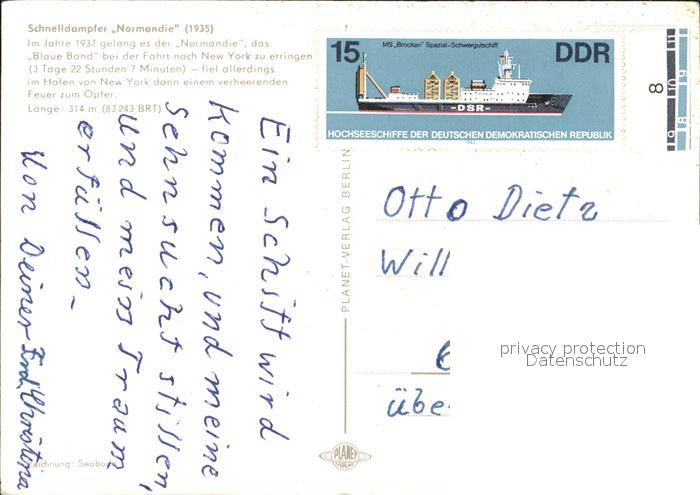 Schnelldampfer „Normandie“ (1935)
Im Jahre 1937 gelang es der „Normandie“, das
„Blaue Band“ bei der Fahrt nach New York zu erringen
(3 Tage 22 Stunden 7 Minuten) — fiel allerdings
im Hafen von New York dann einem verheerenden
Feuer zum Opfer.
Länge: 314 m (83 243 BRT)
Ein Schiff wird
kommen, und meine
Sehnsucht stillen,
und mein Traum
erfüllen –
Von Deiner Christina
Zeichnung: Swobo
PLANET-VERLAG BERLIN
PLANET
VERLAG
15
MS „Brocken“ Spezial-Schwergutschiff
DDR
-DSR-
HOCHSEESCHIFFE DER DEUTSCHEN DEMOKRATISCHEN REPUBLIK
1982
8
11
10
9
19
18
Otto Dietz
Will
6
übe
privacy protection
Datenschutz